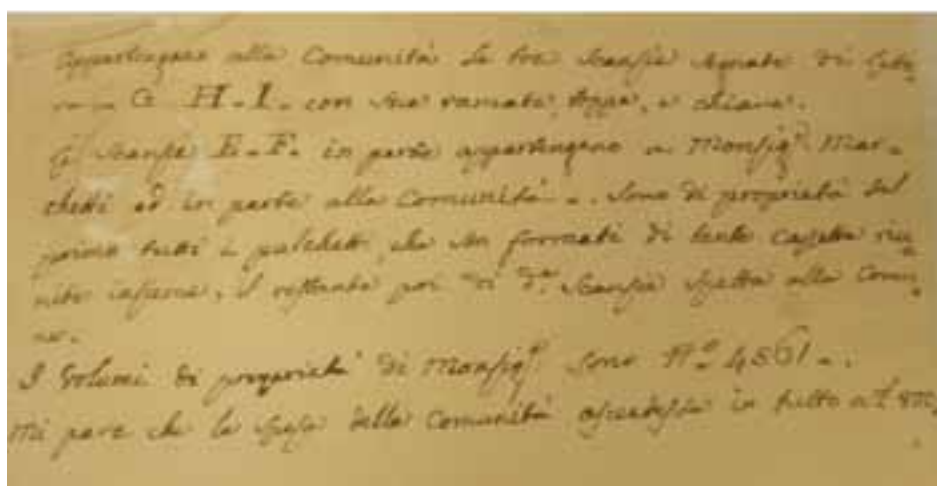 Appartengono alla Comunità le tre Scansie segnate di lette
ra G H. I. con sua ramata, e chiave.
Scansie E. F. in parte appartengono a Monsigr. Mar-
chetti ed in parte alla Comunità. Sono di proprietà del
primo tutti i palchetti, che son formati di tante casette riu-
nite insieme, il restante poi di da. Scansie spetta alla Comu
ne.
I Volumi di proprietà di Monsigr. sono No. 4561.
Mi pare che la spesa della Comunità in tutto a